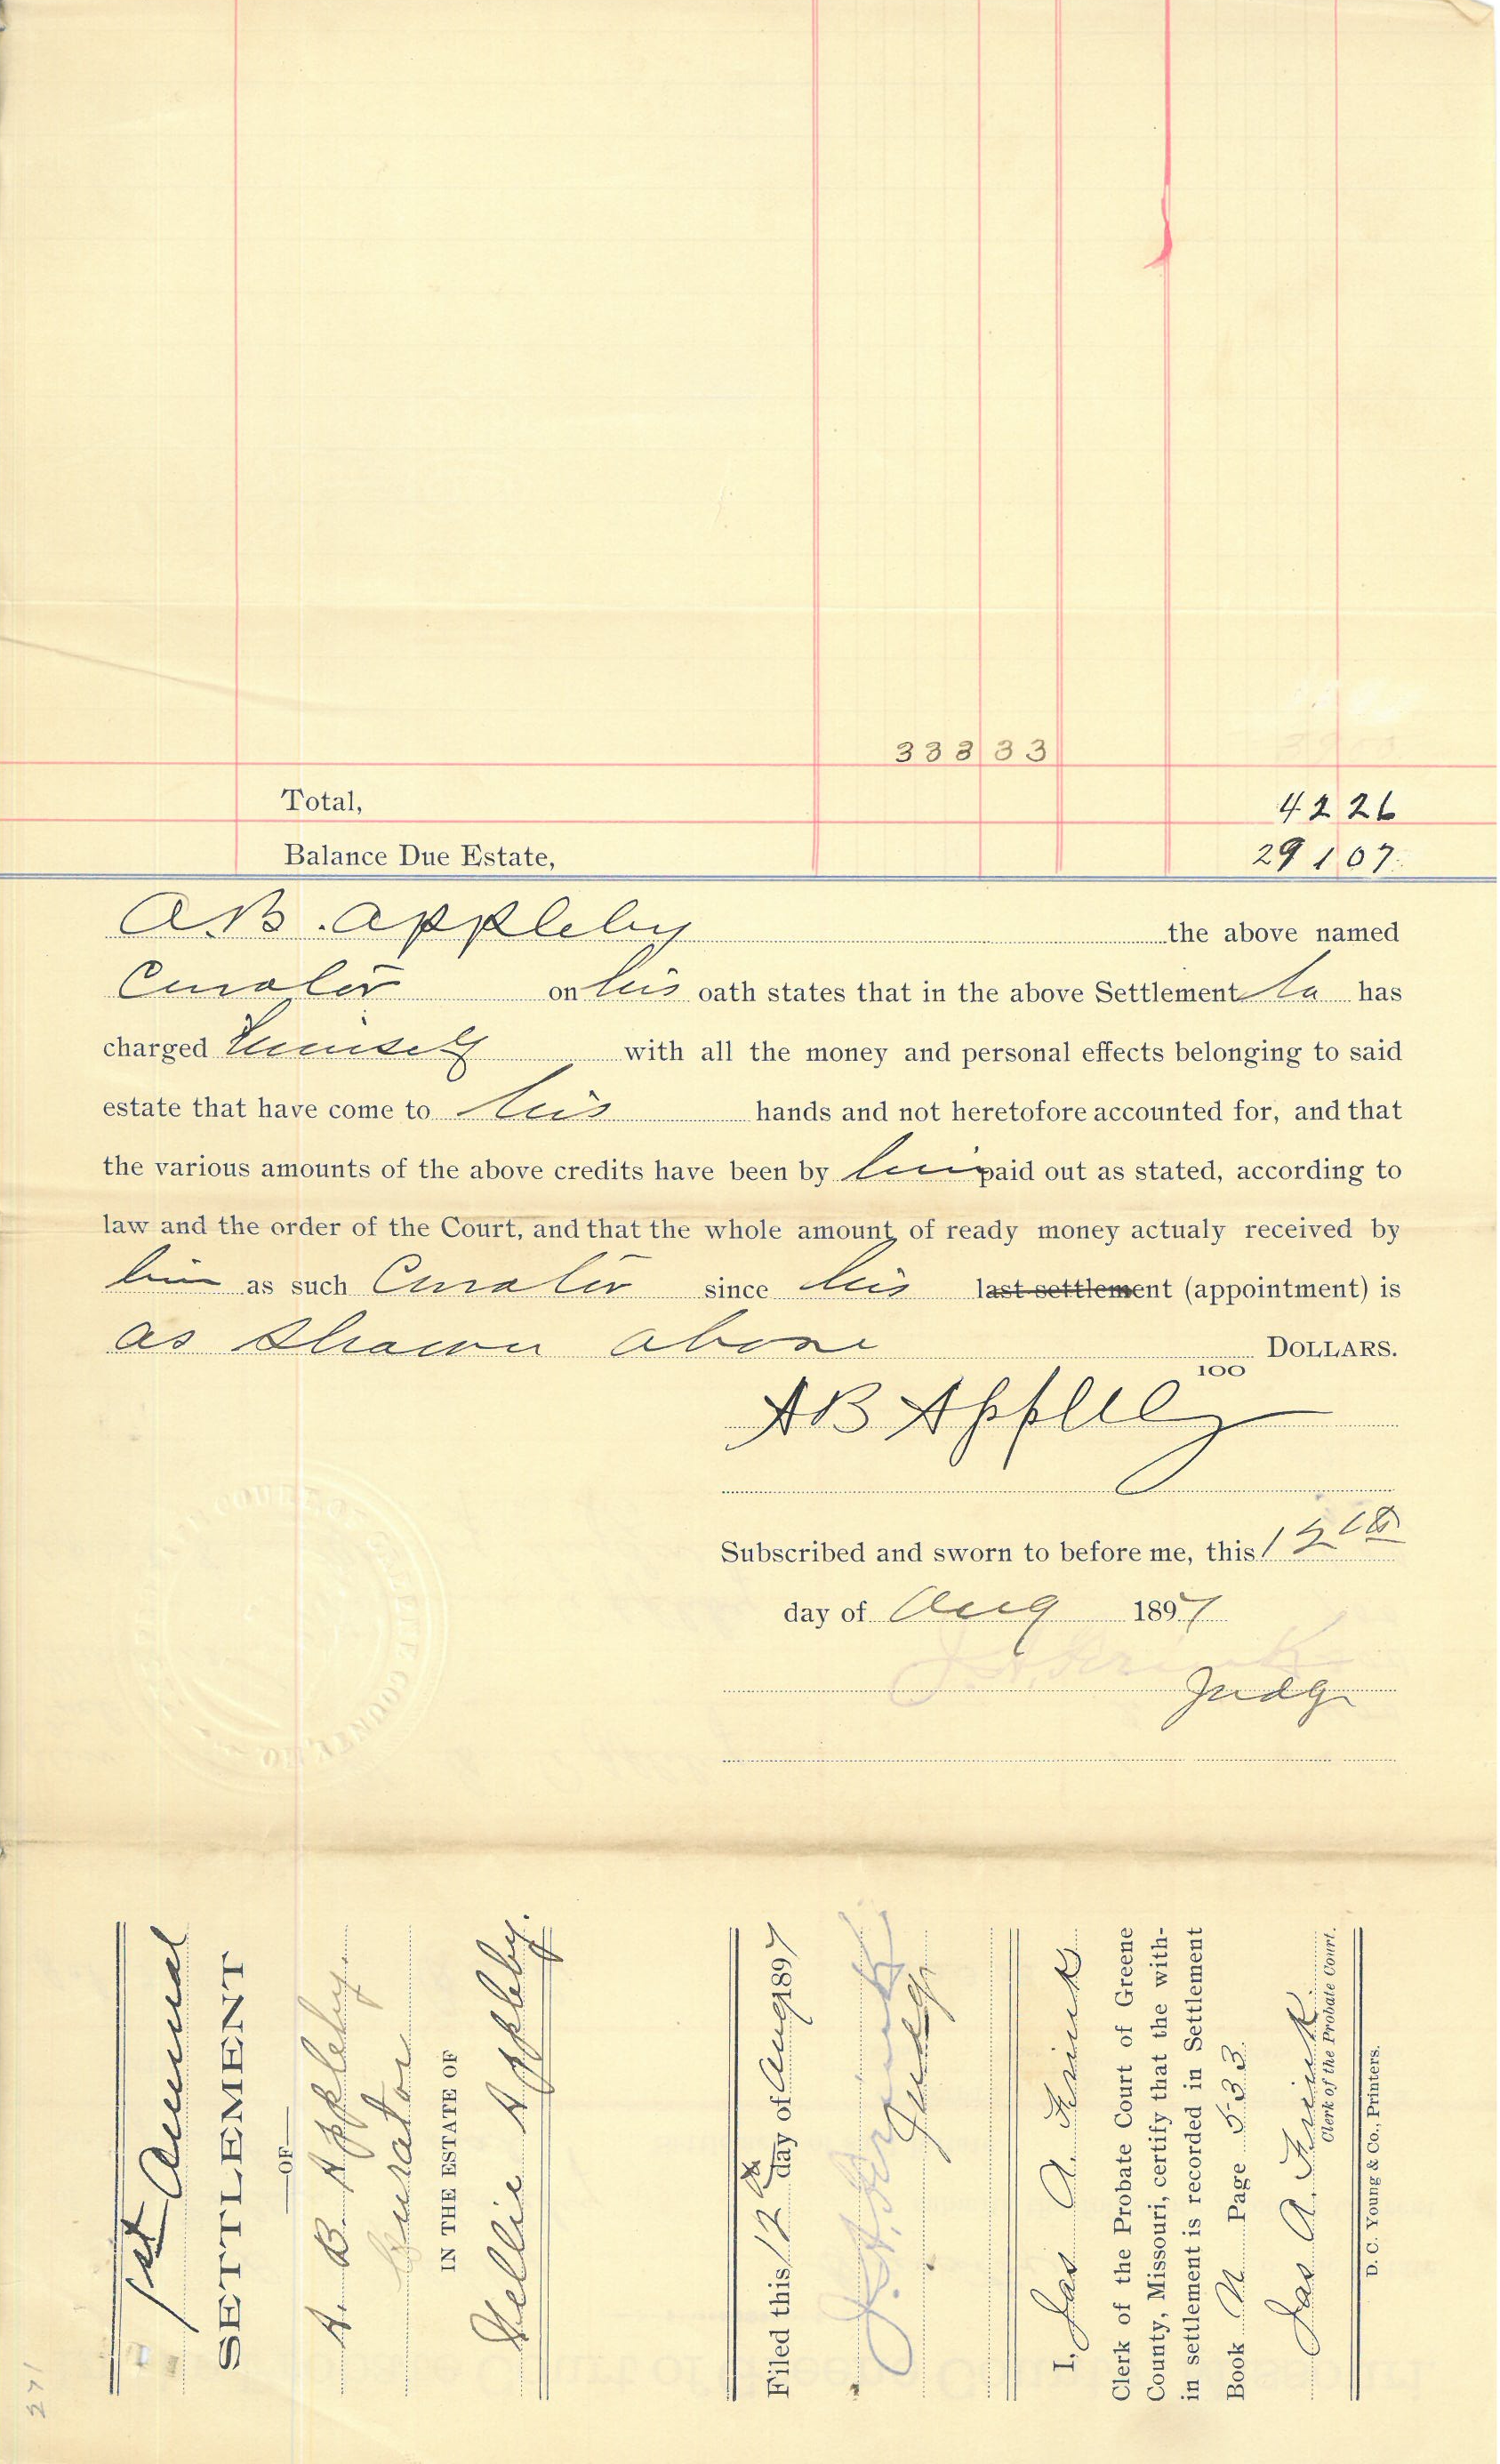 333 33
Total, 42 26
Balance Due Estate, 291 07
A.B. Appleby the above named
Curator on his oath states that in the above Settlement he has
charged himself with all the money and personal effects belonging to said
estate that have come to his hands and not heretofore accounted for, and that
the various amounts of the above credits have been by him paid out as stated, according to
law and the order of the Court, and that the whole amount of ready money actualy received by
him as such Curator since his last settlement (appointment) is
as shown above DOLLARS.
100
A B Appleby
Subscribed and sworn to before me, this 12th
day of Aug 1897
J. A. Frink
Judge
COURT OF GREENE COUNTY, MO
1st Annual
SETTLEMENT
—OF—
A. B. Appleby.
Curator
IN THE ESTATE OF
Nellie Appleby.
Filed this 12th day of Aug 1897
J. A. Frink
Judge
I, Jas A. Frink
Clerk of the Probate Court of Greene
County, Missouri, certify that the with-
in settlement is recorded in Settlement
Book N Page 533
Jas A. Frink
Clerk of the Probate Court.
D. C. Young & Co., Printers.
271